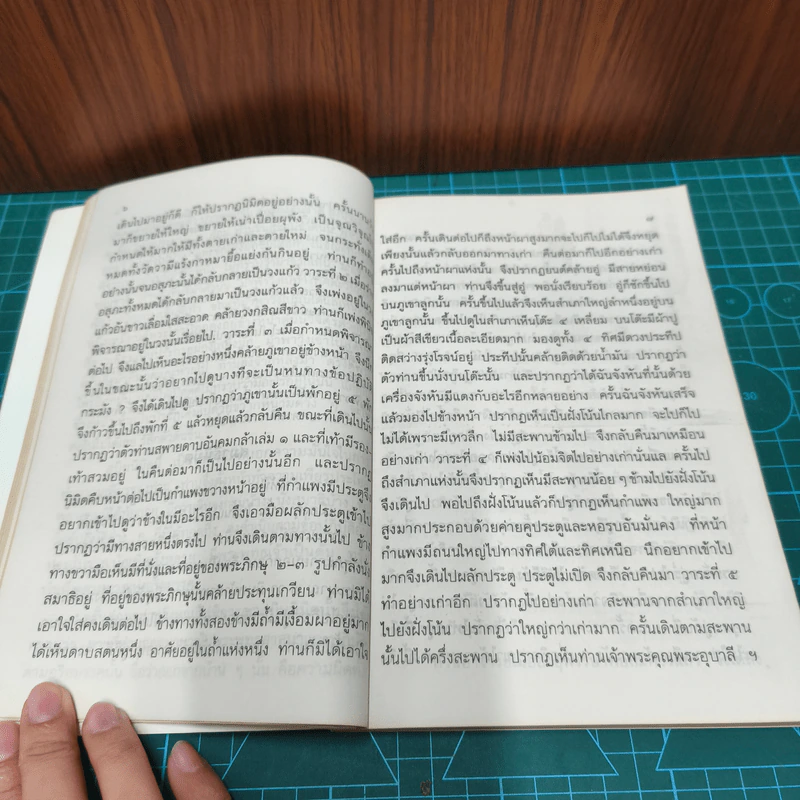 ๖
เดินไปมาอยู่ก็ดี ก็ให้ปรากฏนิมิตอยู่อย่างนั้น ครั้นนาน
มาก็ขยายให้ใหญ่ ขยายให้เน่าเปื่อยผุพัง เป็นจุณวิจุณ
กำหนดให้มากให้มีทั้งตายเก่าและตายใหม่ จนกระทั่ง
หมดทั้งวัดวามีแร้งกาหมายื้อแย่งกันกินอยู่ ท่านก็ทำ
อย่างนั้นจนอสุภะนั้นได้กลับกลายเป็นวงแก้ว วาระที่ ๒ เมื่อ
อสุภะทั้งหมดได้กลับกลายมาเป็นวงแก้วแล้ว จึงเพ่งอยู่ใน
แก้วอันขาวเลื่อมใสสะอาด คล้ายวงกสิณสีขาว ท่านก็เพ่ง
พิจารณาอยู่ในวงนั้นเรื่อยไป. วาระที่ ๓ เมื่อกำหนดพิจารณา
ต่อไป จึงแลไปเห็นอะไรอย่างหนึ่งคล้ายภูเขาอยู่ข้างหน้า จึง
ขึ้นในขณะนั้นว่าอยากไปดูบางทีจะเป็นหนทางข้อปฏิบัติ
กระมัง ? จึงได้เดินไปดู ปรากฏว่าภูเขานั้นเป็นพักอยู่ ๕ พัก
จึงก้าวขึ้นไปถึงพักที่ ๕ แล้วหยุดแล้วกลับคืน ขณะที่เดินไปนั้น
ปรากฏว่าตัวท่านสพายดาบอันคมกล้าเล่ม ๑ และที่เท้ามีรอง
เท้าสวมอยู่ ในคืนต่อมาก็เป็นไปอย่างนั้นอีก และปรากฏ
นิมิตคืบหน้าต่อไปเป็นกำแพงขวางหน้าอยู่ ที่กำแพงมีประตูจึง
อยากเข้าไปดูว่าข้างในมีอะไรอีก จึงเอามือผลักประตูเข้าไป
ปรากฏว่ามีทางสายหนึ่งตรงไป ท่านจึงเดินตามทางนั้นไป ข้าง
ทางขวามือเห็นมีที่นั่งและที่อยู่ของพระภิกษุ ๒-๓ รูปกำลังนั่ง
สมาธิอยู่ ที่อยู่ของพระภิกษุนั้นคล้ายประทุนเกวียน ท่านมิได้
เอาใจใส่คงเดินต่อไป ข้างทางทั้งสองข้างมีถ้ำมีเงื้อมผาอยู่มาก
ได้เห็นดาบสตนหนึ่ง อาศัยอยู่ในถ้ำแห่งหนึ่ง ท่านก็มิได้เอาใจ
๗
ใส่อีก ครั้นเดินต่อไปก็ถึงหน้าผาสูงมากจะไปก็ไปไม่ได้จึงหยุด
เพียงนั้นแล้วกลับออกมาทางเก่า คืนต่อมาก็ไปอีกอย่างเก่า
ครั้นไปถึงหน้าผาแห่งนั้น จึงปรากฏยนต์คล้ายอู่ มีสายหย่อน
ลงมาแต่หน้าผา ท่านจึงขึ้นสู่อู่ พอนั่งเรียบร้อย อู่ก็ชักขึ้นไป
บนภูเขาลูกนั้น ครั้นขึ้นไปแล้วจึงเห็นสำเภาใหญ่ลำหนึ่งอยู่บน
ภูเขาลูกนั้น ขึ้นไปดูในสำเภาเห็นโต๊ะ ๔ เหลี่ยม บนโต๊ะมีผ้าปู
เป็นผ้าสีเขียวเนื้อละเอียดมาก มองดูทั้ง ๔ ทิศมีดวงประทีป
ติดสว่างรุ่งโรจน์อยู่ ประทีปนั้นคล้ายติดด้วยน้ำมัน ปรากฏว่า
ตัวท่านขึ้นนั่งบนโต๊ะนั้น และปรากฏว่าได้ฉันจังหันที่นั้นด้วย
เครื่องจังหันมีแตงกับอะไรอีกหลายอย่าง ครั้นฉันจังหันเสร็จ
แล้วมองไปข้างหน้า ปรากฏเห็นเป็นฝั่งโน้นไกลมาก จะไปก็ไป
ไม่ได้เพราะมีเหวลึก ไม่มีสะพานข้ามไป จึงกลับคืนมาเหมือน
อย่างเก่า วาระที่ ๔ ก็เพ่งไปน้อมจิตไปอย่างเก่านั่นแล ครั้นไป
ถึงสำเภาแห่งนั้นจึงปรากฏเห็นมีสะพานน้อย ๆ ข้ามไปยังฝั่งโน้น
จึงเดินไป พอไปถึงฝั่งโน้นแล้วก็ปรากฏเห็นกำแพง ใหญ่มาก
สูงมากประกอบด้วยค่ายคูประตูและหอรบอันมั่นคง ที่หน้า
กำแพงมีถนนใหญ่ไปทางทิศใต้และทิศเหนือ นึกอยากเข้าไป
มากจึงเดินไปผลักประตู ประตูไม่เปิด จึงกลับคืนมา วาระที่ ๕
ทำอย่างเก่าอีก ปรากฏไปอย่างเก่า สะพานจากสำเภาใหญ่
ไปยังฝั่งโน้น ปรากฏว่าใหญ่กว่าเก่ามาก ครั้นเดินตามสะพาน
นั้นไปได้ครึ่งสะพาน ปรากฏเห็นท่านเจ้าพระคุณพระอุบาลี ฯ
30